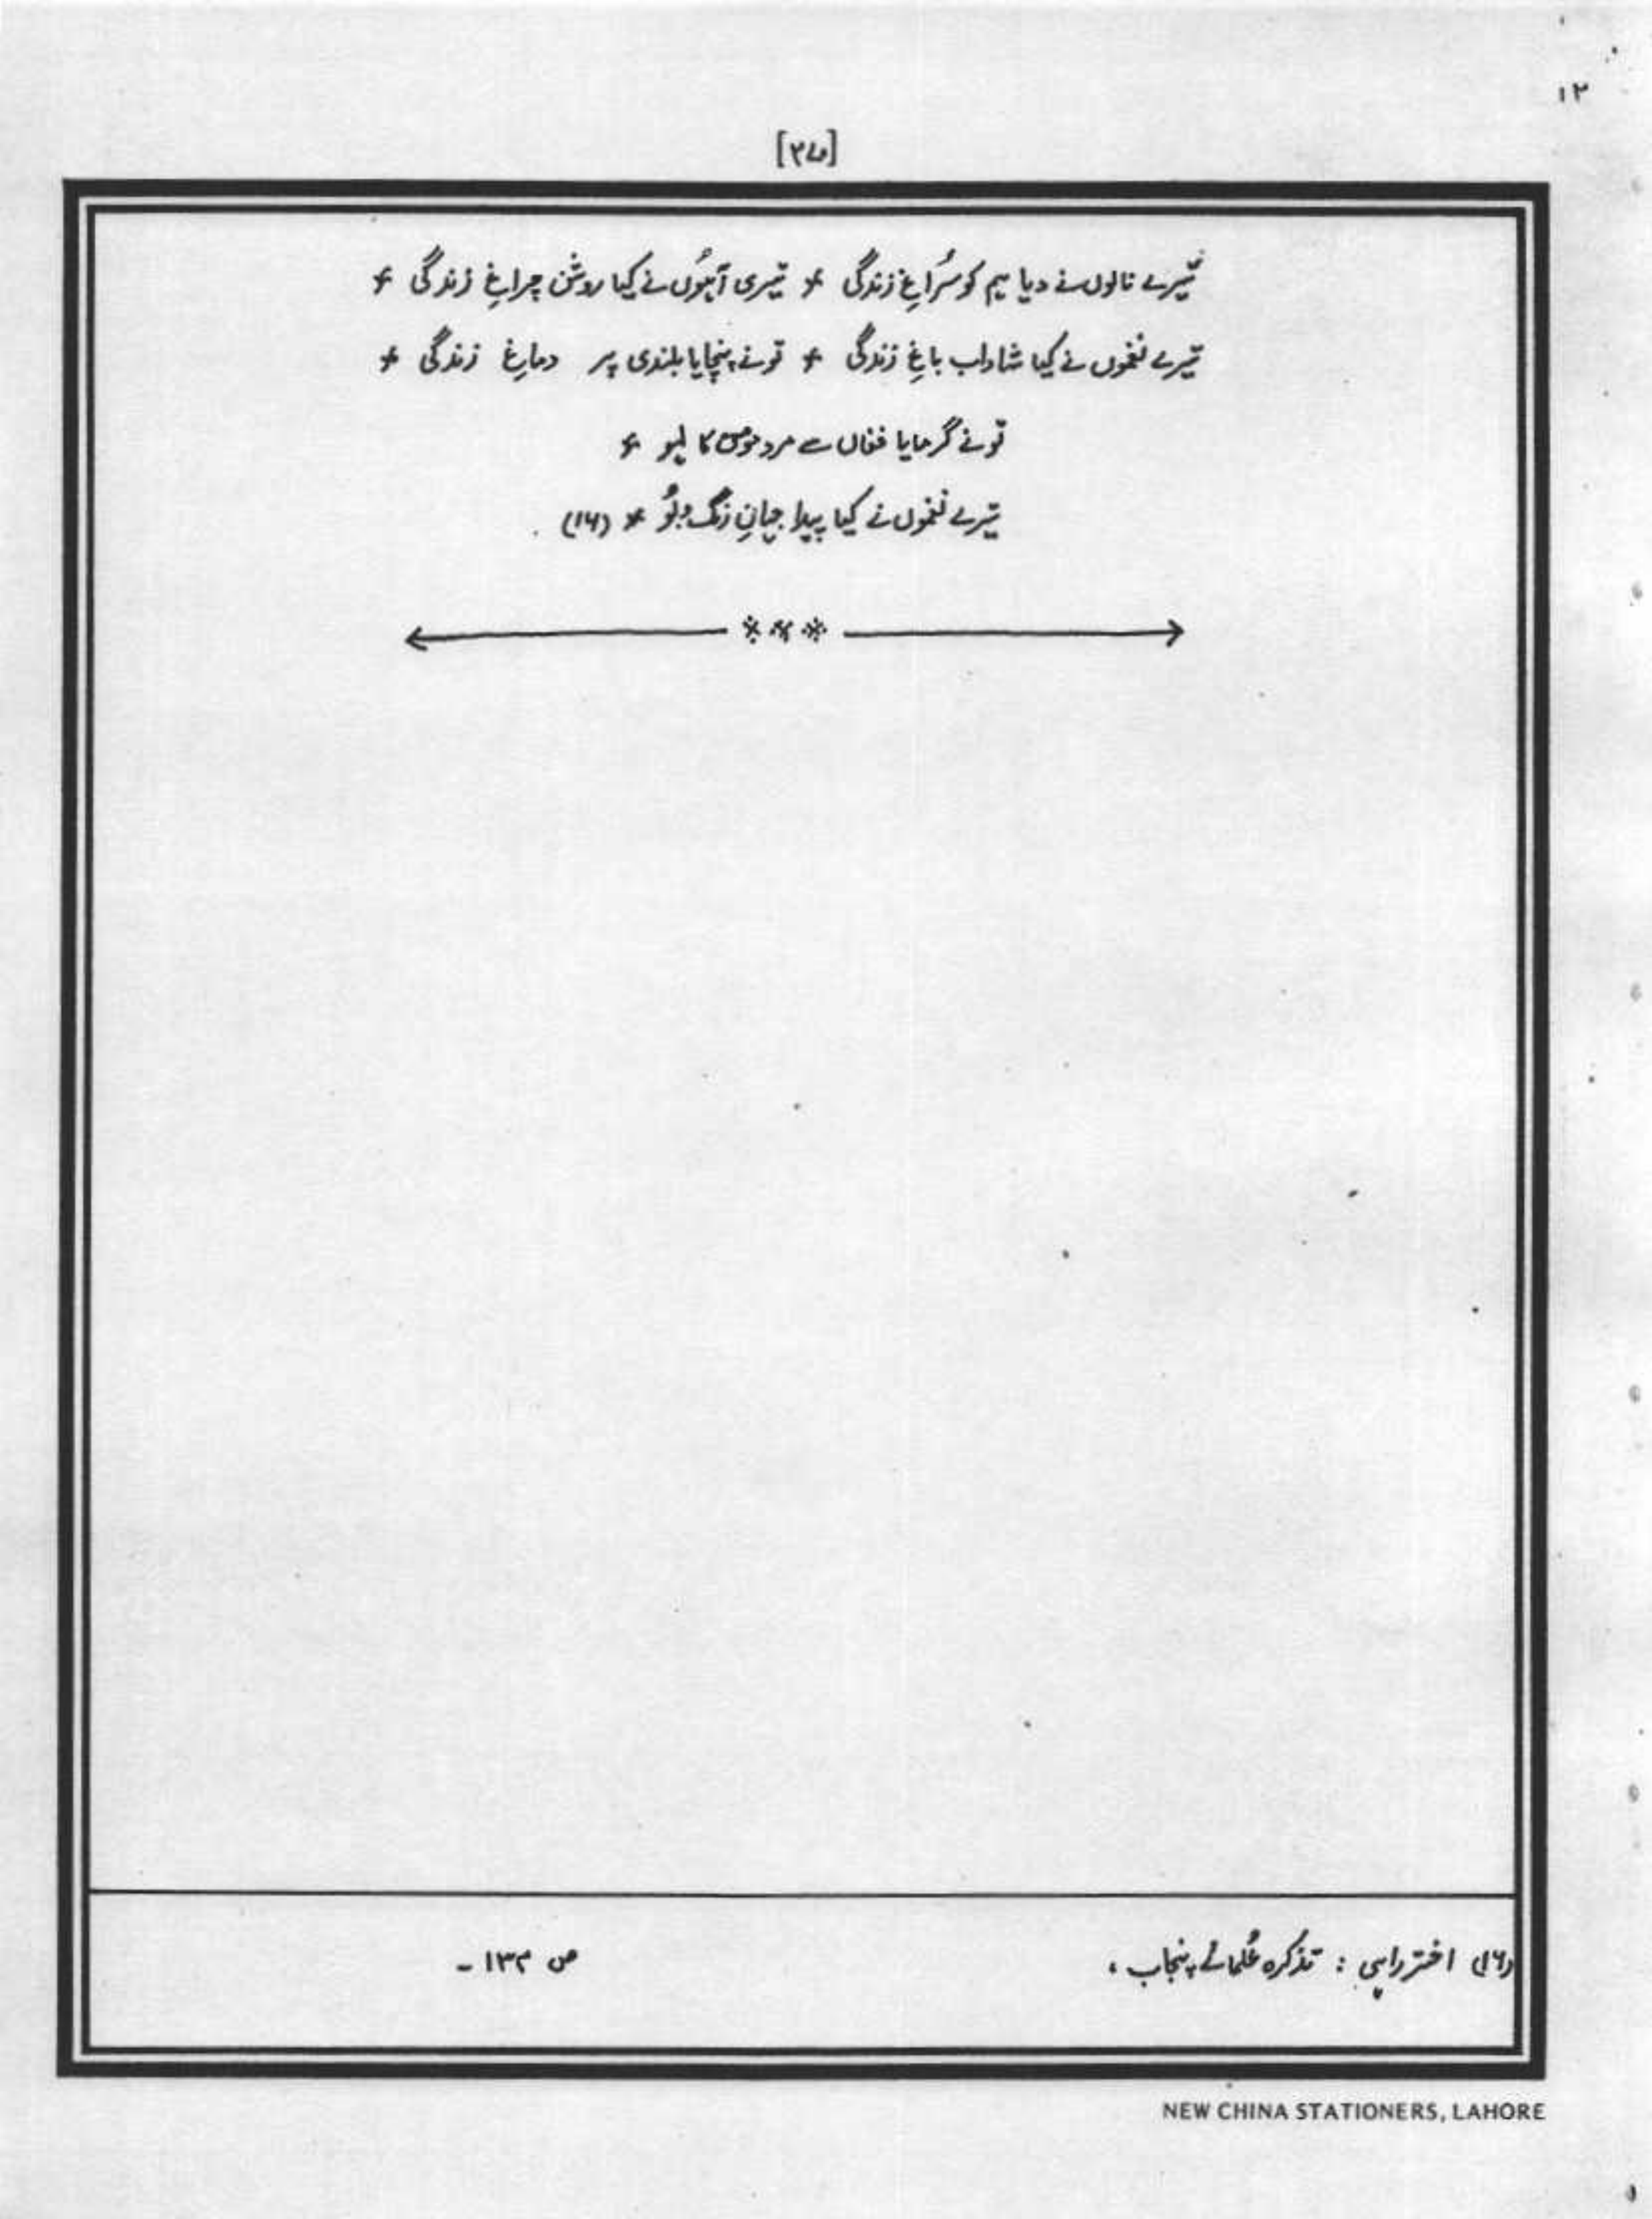 ۱۳
[۳۵]
تیرے نالوں نے دیا ہم کو سُراغِ زندگی * تیری آہوں نے کیا روشن چراغِ زندگی *
تیرے نغموں نے کیا شاداب باغِ زندگی * تو نے پہنچایا بلندی پر دماغِ زندگی *
تو نے گرمایا فغاں سے مرد مومن کا لہو *
تیرے نغموں نے کیا پیدا جہانِ رنگ و بُو * (۱۶)
***
(۱۶) اختر راہی : تذکرہ عُلمائے پنجاب ،
ص ۱۳۲ -
NEW CHINA STATIONERS, LAHORE